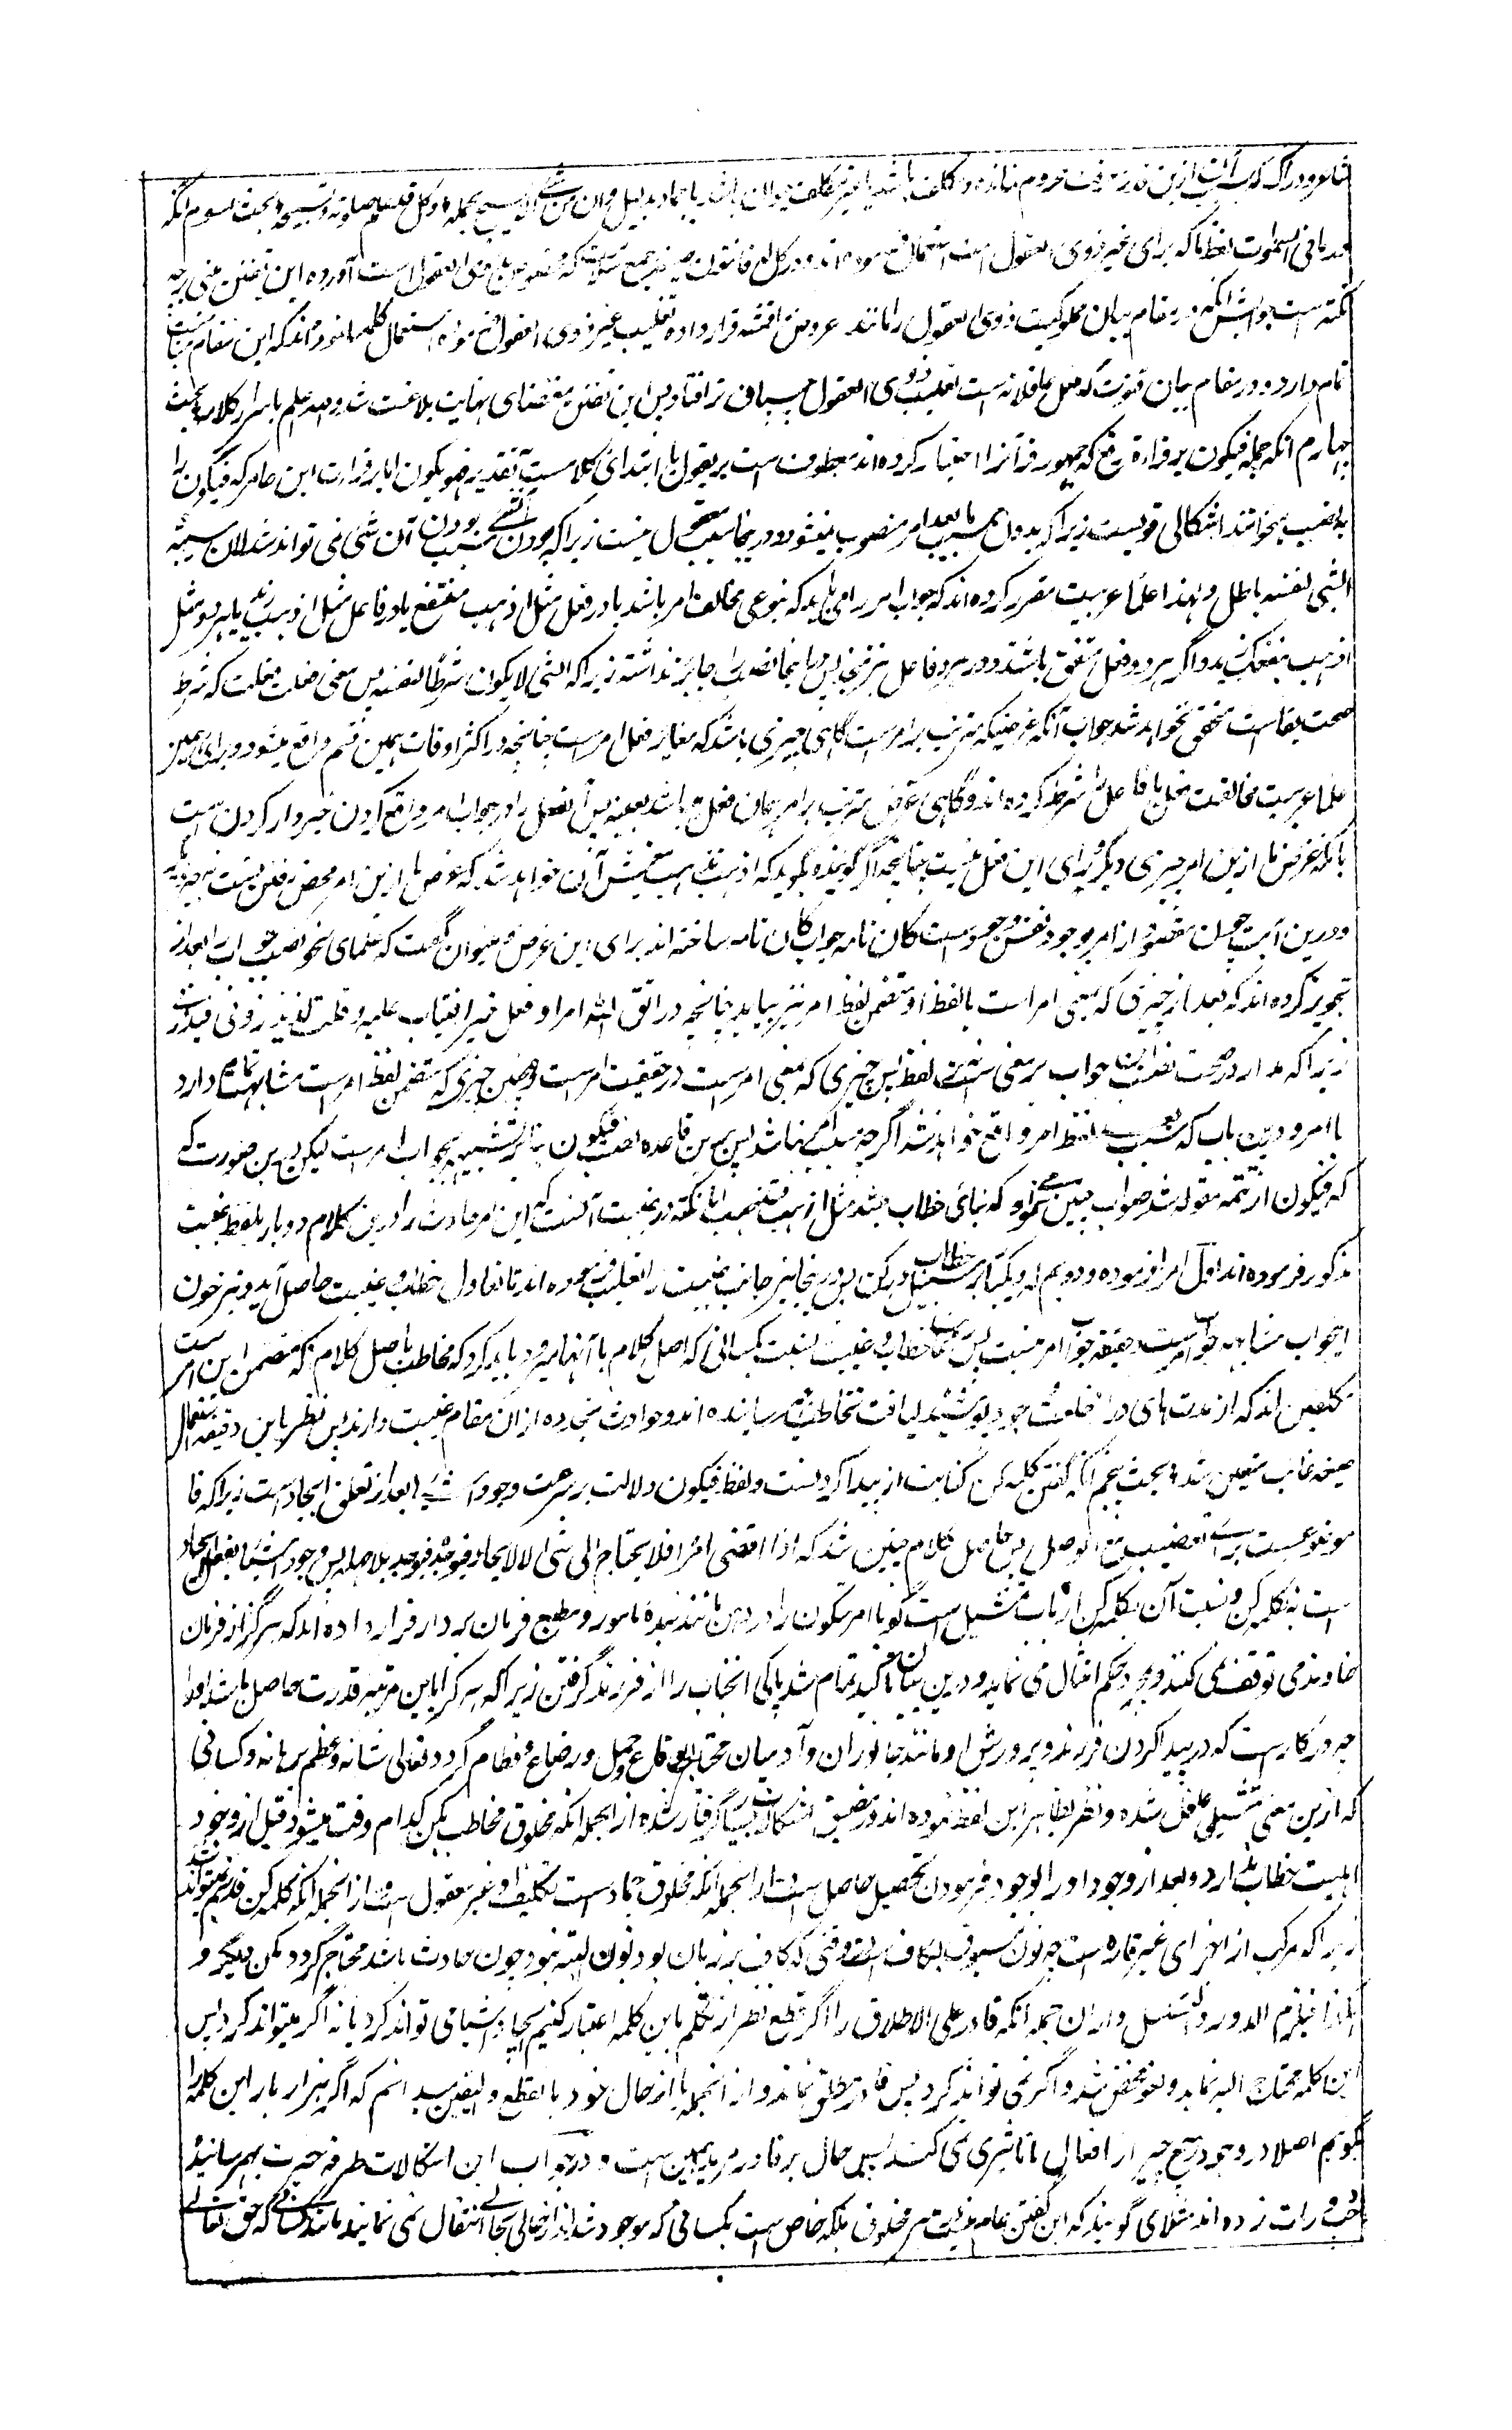 شاعر و دراک که بسبب آن ازین قدر معرفت محروم نمانده و مکلف باشد یا غیر مکلف حیوان باشد یا جماد بدلیل وان من شئی الا یسبح بحمده و کل قد علم صلوته و تسبیحه بحث سوم آنکه
در ما فی السموات لفظ ما که برای غیر ذوی العقول است استعمال فرموده اند و در کل له قانتون صیغه جمع سلامت که مخصوص بذوی العقول است آورده این تفنن مبنی بر چه
نکته است جوابش آنکه در مقام بیان مملوکیت ذوی العقول را مانند عروض و اقمشه قرار داده تغلیب غیر ذوی العقول نموده استعمال کلمه ما فرموده اند که این مقام مناسبت
تام دارد و در مقام بیان قنوت که فعل عاقلانه است تغلیب ذوی العقول چسپان تر افتاد پس این تفنن مقتضای نهایت بلاغت شد والله اعلم باسرار کلامه بحث
چهارم آنکه جمله فیکون بر قراءة رفع که جمهور قرا آنرا اختیار کرده اند معطوف است بر یقول یا ابتدای کلام است بتقدیر فهو یکون اما بر قراءت ابن عامر که فیکون را
به نصب میخوانند اشکالی قویست زیرا که بدون سببیت ما بعد امر منصوب نمیشود و در ینجا سببیت معقول نیست زیرا که بودن شئی سبب بودن آن شئی نمی تواند شد لان سببیة
الشئی لنفسه باطل و لهذا علماء عربیت مقرر کرده اند که جواب امر را می باید که بنوعی مخالف امر باشد یا در فعل مثل اذهب تنتفع یا در فاعل مثل اذهب یذهب زید یا بهر دو مثل
اذهب ینفعک زید و اگر هر دو فعل متفق باشند و در هر دو فاعل نیز متحد پس در اینجا نصب را جایز نداشته زیرا که الشئی لا یکون شرطا لنفسه پس معنی ان فعلت فعلت که شرط
صحت بقاست متحقق نخواهد شد جواب آنکه غرضیکه مترتب بر امر است گاهی چیزی باشد که مغایر فعل امر است چنانچه در اکثر اوقات همین قسم واقع میشود و برای همین
علما عربیت مخالفت فعل یا فاعل را شرط کرده اند و گاهی غرض مترتب بر امر همان فعل می باشد بعینه پس آن فعل را در جواب امر واقع کردن خبردار کردن است
بآنکه غرض ما ازین امر چیزی دیگر ورای این فعل نیست چنانچه اگر گوینده بگوید که اذهب تذهب معنیش آن خواهد شد که غرض ما ازین امر محض رفتن تست نه چیز دیگر
و درین آیت چون مقصود از امر بوجود نفس وجود است کان تامه جواب کان تامه ساخته اند برای این غرض و میتوان گفت که علمای نحو نصب جواب را بعد از
تجویز کرده اند که بعد از چیزی که بمعنی امر است یا لفظ او متضمن لفظ امر نیز بیاید چنانچه در اتق الله امرؤ فعل خیرا فیثاب علیه و قلت لزید زرنی فیزورک
زیرا که مدار در صحت نصب جواب بر معنی است نه لفظ پس چیزی که بمعنی امر است در حقیقت امر است و همچنین چیزی که متضمن لفظ امر است مشابهت تمام دارد
با امر و درین باب که بعد لفظ امر واقع خواهد شد اگر چه سبب آن نباشد پس برین قاعده نصب فیکون بنا بر تشبیه بجواب امر است لیکن برین صورت که
که فیکون از تتمه مقوله شد صواب چنین می نمود که بتای خطاب میشد مثل اذهب فتذهب اما نکته در غیبت آنست که این امر حادث را درین کلام دو بار بلفظ غیبت
مذکور فرموده اند اول امرا فرموده و دوم له و یکبار بر سبیل خطاب در کن پس در ینجا نیز جانب غیبت را تغلیب فرموده اند تا تعادل خطاب و غیبت حاصل آید و نیز چون
این جواب مشابه جواب امر است نه حقیقة جواب امر نیست پس رعایت خطاب و غیبت به نسبت کسانی که اصل کلام با آنها میرود باید کرد که مخاطب باصل کلام که متضمن این امر است
مکلفین اند که از مدت های دراز خلعت وجود پوشیده لیاقت تخاطب بهم رسانیده اند و حوادث متجدده از ان مقام غیبت دارند پس نظر باین دقیقه استعمال
صیغه غائب متعین شد بحث پنجم آنکه گفتن کلمه کن کنایت از پیدا کردنست و لفظ فیکون دلالت بر سرعت وجود آن شئی بعد از تعلق ایجاد است زیرا که فا
موضوعست برای تعقیب مع الوصل پس حاصل کلام چنین شد که اذا قضی امرا فلا یحتاج الی شئ الا لایجاده فیوجد فیوجد بلا مهلة پس وجود اشیا بفعل ایجاد
است نه بکلمه کن و نسبت آن بکلمه کن از باب تمثیل است گویا امر تکون را در ذهن مانند بنده مامور و مطیع فرمان بردار قرار داده اند که هرگز از فرمان
خاوند می توقف نمی کند و بمجرد حکم امتثال می نماید و درین بیان تاکید تمام شد پاکی آنجناب را از فرزند گرفتن زیرا که هر کرا باین مرتبه قدرت حاصل باشد او را
چه در کار است که در پیدا کردن فرزند و پرورش او مانند جانوران و آدمیان محتاج بوقاع و حمل و رضاع و فطام گردد تعالی شانه و عظم برهانه و کسانی
که ازین معنی تمثیلی غافل شده و نظر بظاهر این لفظ نموده اند در مضیق اشکالات بسیار گرفتار شده از انجمله آنکه مخلوق مخاطب بکن کدام وقت میشود قبل از وجود
اهلیت خطاب ندارد و بعد از وجود او را بوجود فرمودن تحصیل حاصل است و از انجمله آنکه مخلوق جماد است تکلیف او غیر معقول است و از انجمله آنکه کلمه کن قدیم نمیتواند شد
زیرا که مرکب از اجزای غیر قاره است چه نون مسبوق بکاف است و وقتی که کاف بر زبان بود نون البته نبود چون حادث باشد محتاج گردد بکن دیگر و
هکذا فیلزم الدور و التسلسل و از ان جمله آنکه قادر علی الاطلاق را اگر قطع نظر از تکلم باین کلمه اعتبار کنیم ایجاد اشیا می تواند کرد یا نه اگر میتواند کرد پس
این کلمه محتاج الیه نماند و لغو محض شد و اگر نمی تواند کرد پس قادر مطلق نماند و از انجمله ما از حال خود بالقطع و الیقین میدانیم که اگر هزار بار این کلمه را
گوییم اصلا در وجود هیچ چیز از افعال ما تاثیری نمی کند پس حال بر قادر مرید همین است و در جواب این اشکالات طرفه حیرت بهم رسانیده
ضرورات زده اند مثلا می گویند که این گفتن عام نیست بهر مخلوق بلکه خاص است بکسانی که موجود شده اند از حالی بحالی انتقال می نمایند مانند کسانی که حق تعالی